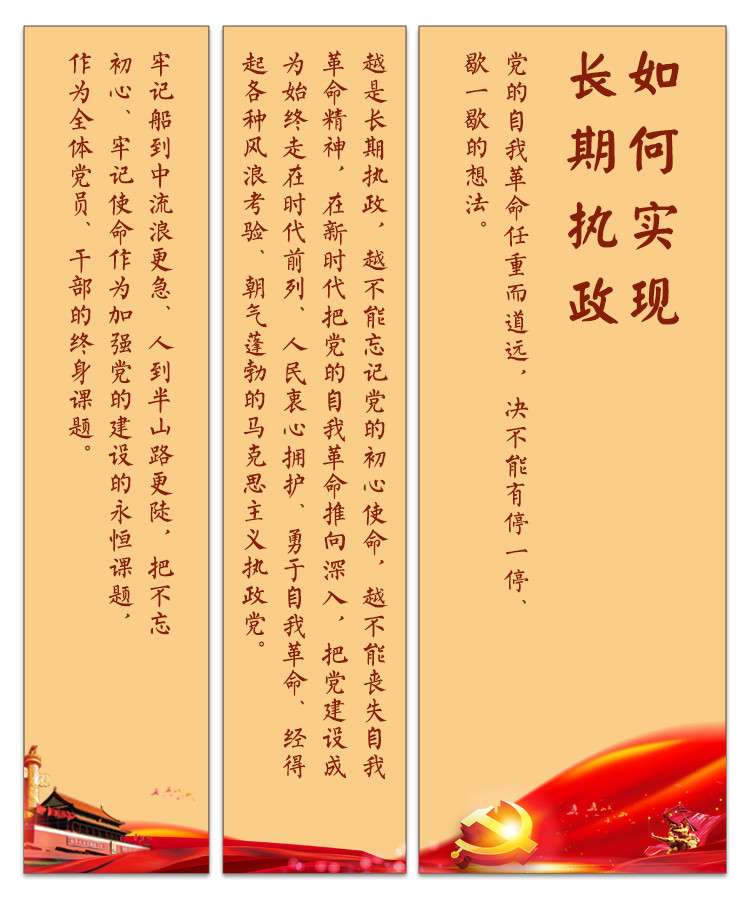 如何实现
长期执政
党的自我革命任重而道远，决不能有停一停、
歇一歇的想法。
越是长期执政，越不能忘记党的初心使命，越不能丧失自我
革命精神，在新时代把党的自我革命推向深入，把党建设成
为始终走在时代前列、人民衷心拥护、勇于自我革命、经得
起各种风浪考验、朝气蓬勃的马克思主义执政党。
牢记船到中流浪更急、人到半山路更陡，把不忘
初心、牢记使命作为加强党的建设的永恒课题，
作为全体党员、干部的终身课题。